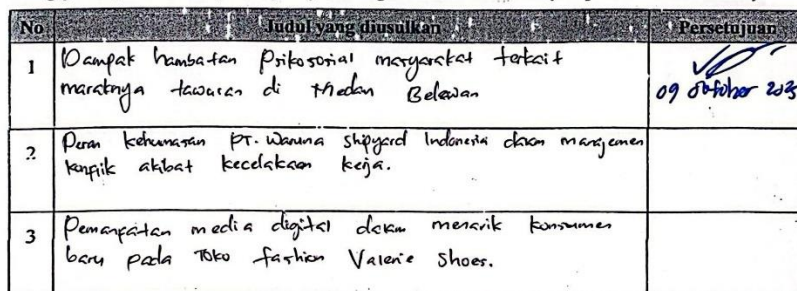 No Judul yang diusulkan Persetujuan
1 Dampak hambatan Psikososial masyarakat terkait
maraknya tawuran di Medan Belawan
09 Oktober 2025
2. Peran kehumasan PT. Waruna Shipyard Indonesia dalam manajemen
konflik akibat kecelakaan kerja.
3 Pemanfaatan media digital dalam menarik konsumen
baru pada Toko fashion Valerie Shoes.